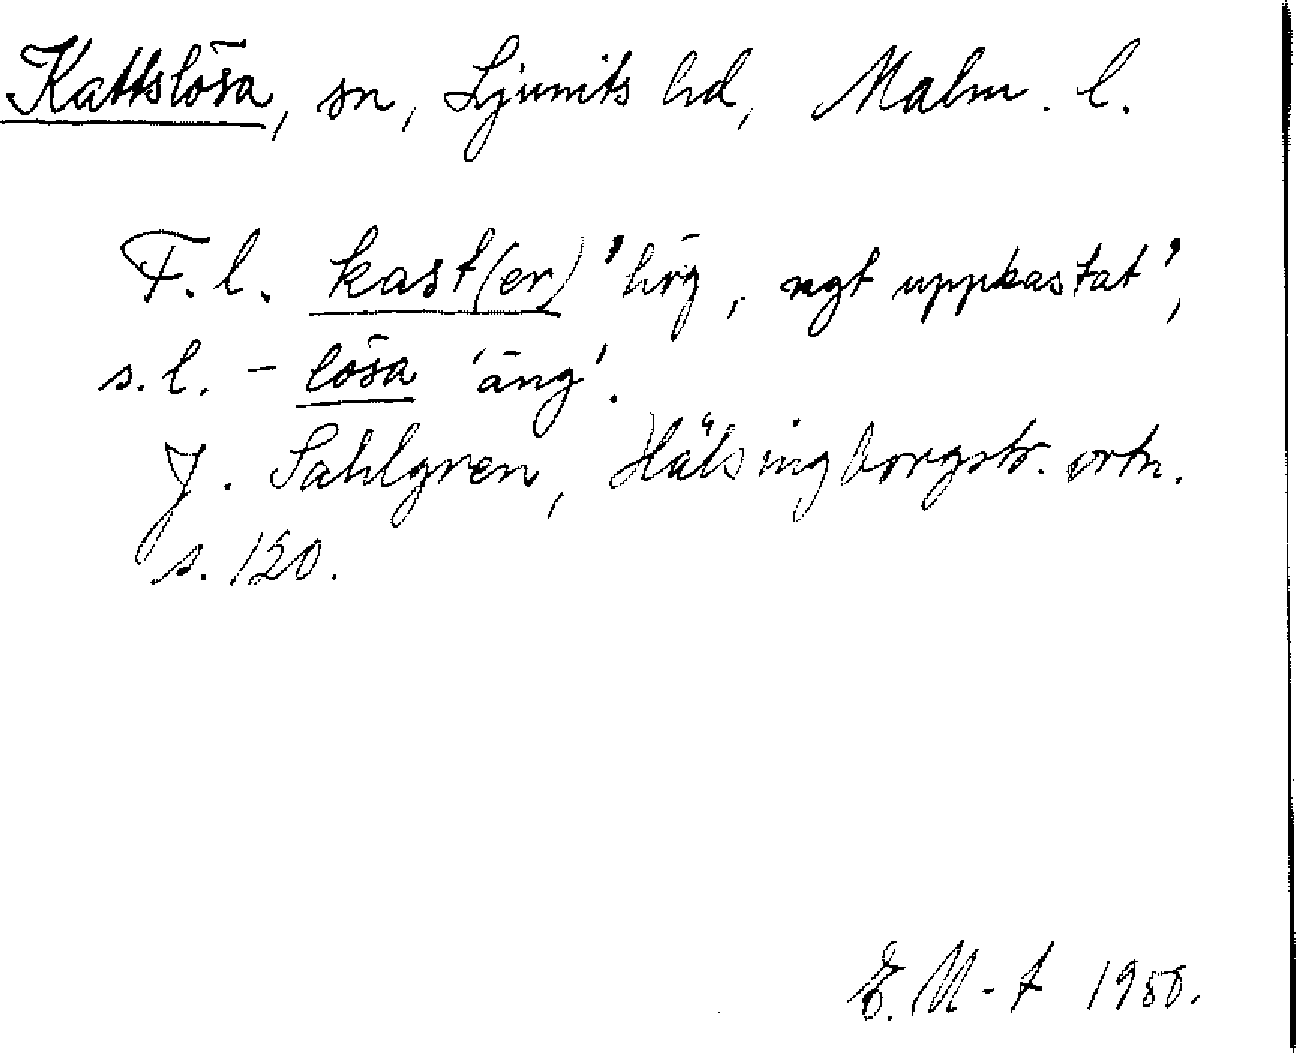 Kattslösa, sn, Ljunits hd, Malm. l.
F. l. kast(er) 'hög, ngt uppkastat',
s. l. - lösa 'äng'.
J. Sahlgren, Hälsingborgstr. ortn.
s. 120.
E. M-t 1958.